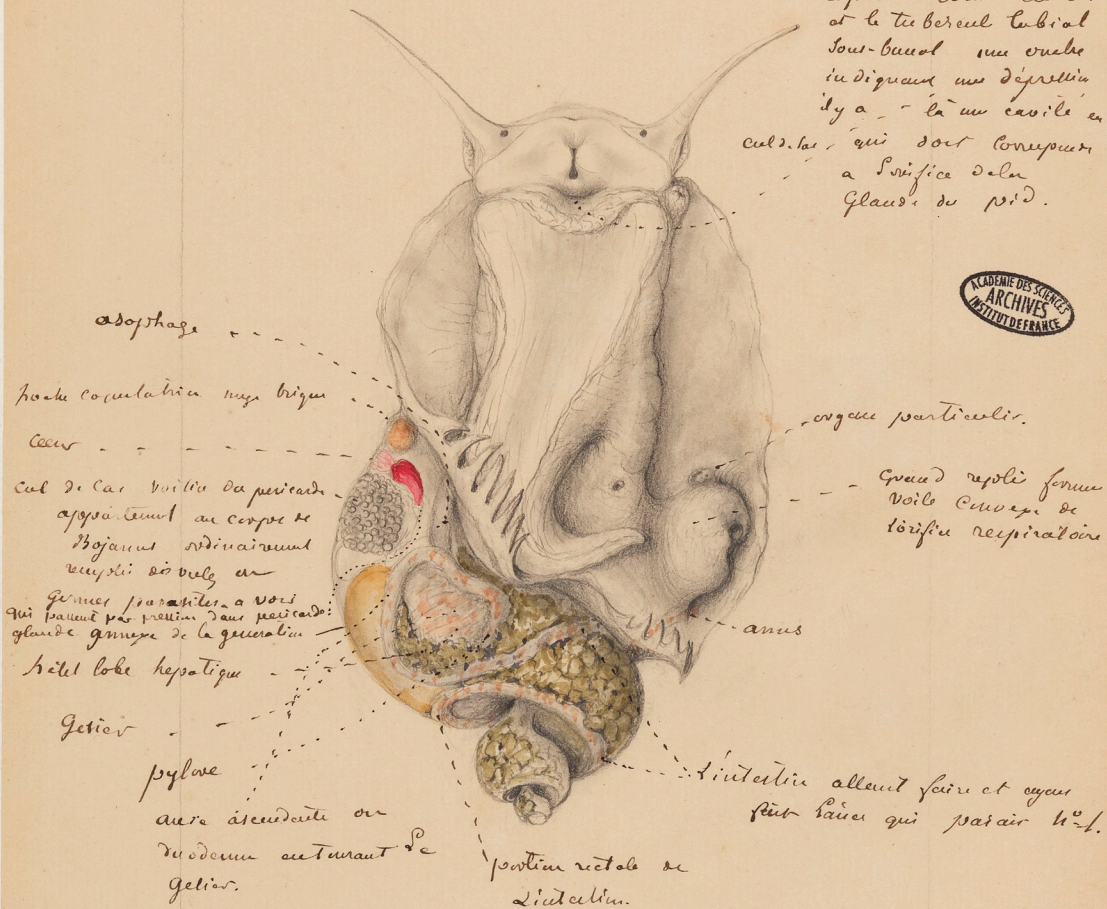 et le tubercul labial
sous-buccal une ombre
indiquant une dépression
il y a - là une cavité en
cul de sac, qui doit correspondre
a l'orifice dela
Glande du pied.
ACADEMIE DES SCIENCES
ARCHIVES
INSTITUT DE FRANCE
œsophage
poche copulatrice rouge brique
Cœur
cul de sac voisin du pericarde
appartenant au corps de
Bojanus ordinairement
rempli
germes parasites
qui passent par pression dans pericarde
glande annexe de la generation
petit lobe hepatique
Gesier
pylore
anse ascendante ou
duodenum entourant Le
Gesier.
portion rectale de
L'intestin.
organe particulier.
Grand repli forme
voile convexe de
l'orifice respiratoire
anus
L'intestin allant faire et ayant
fait l'anse qui parait nº 1.